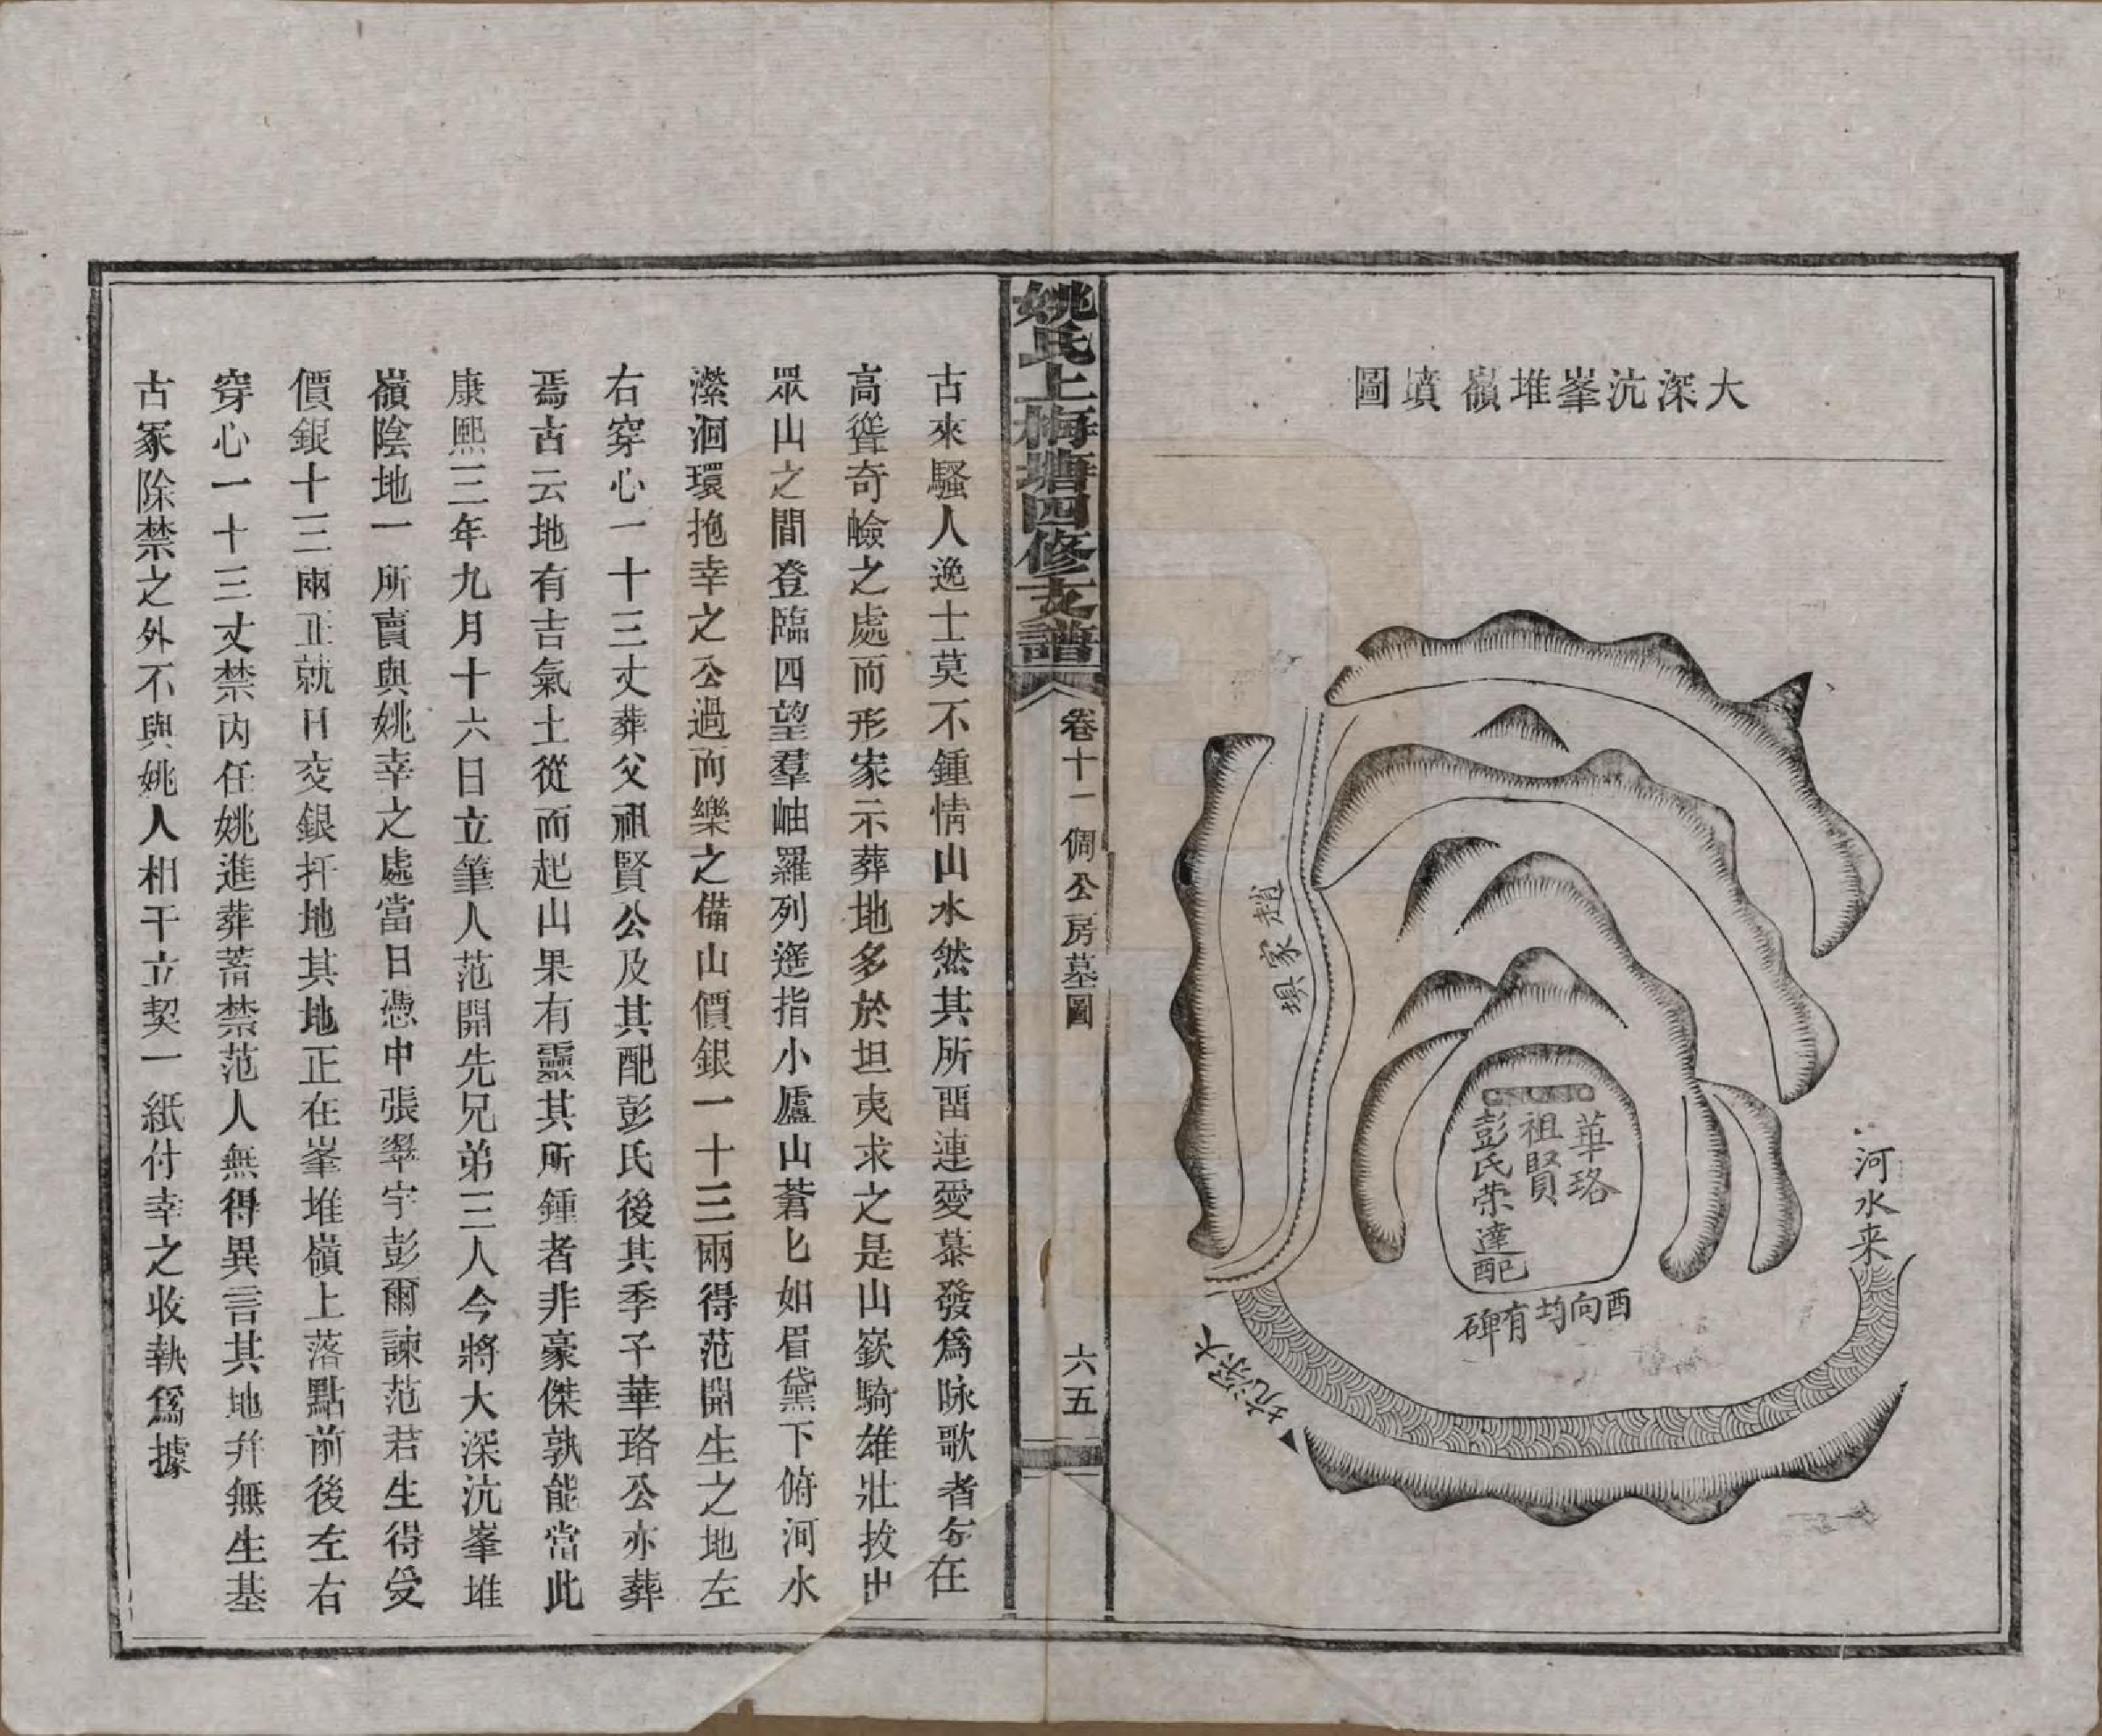 大深沆峯堆嶺墳圖
趙家垻
華珞
祖賢
彭氏荣達配
酉向均有碑
河水来
大深坑
姚氏上梅塘四修支譜
卷十一 倜公房墓圖
六五
古來騷人逸士莫不鍾情山水然其所畱連愛慕發爲咏歌者每在
高聳奇嶮之處而形家示葬地多於坦夷求之是山嶔騎雄壯拔出
眾山之間登臨四望羣岫羅列遙指小廬山蒼匕如眉黛下俯河水
瀠洄環抱幸之公過而樂之備山價銀一十三兩得范開生之地左
右穿心一十三丈葬父祖賢公及其配彭氏後其季子華珞公亦葬
焉古云地有吉氣土從而起山果有靈其所鍾者非豪傑孰能當此
康熙三年九月十六日立筆人范開先兄弟三人今將大深沆峯堆
嶺陰地一所賣與姚幸之處當日憑中張翠宇彭爾諫范君生得受
價銀十三兩正就日交銀扦地其地正在峯堆嶺上落點前後左右
穿心一十三丈禁內任姚進葬蓄禁范人無得異言其地幷無生基
古冢除禁之外不與姚人相干立契一紙付幸之收執爲據